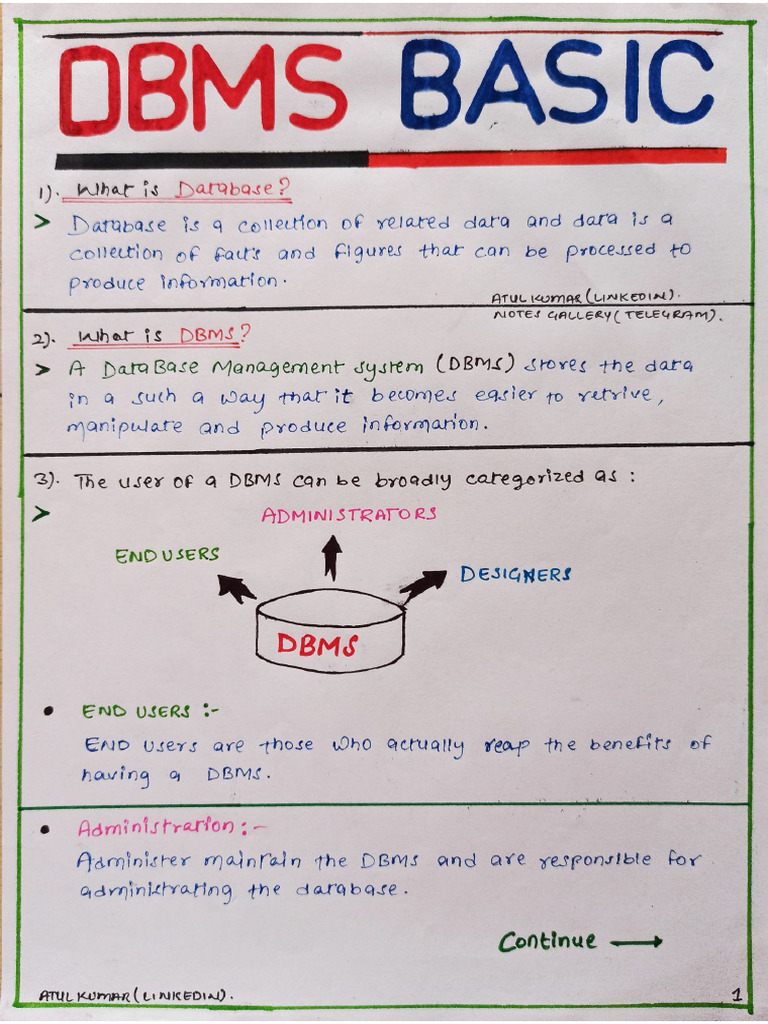 DBMS BASIC
1). What is Database?
> Database is a collection of related data and data is a
collection of facts and figures that can be processed to
produce information.
ATUL KUMAR (LINKEDIN).
NOTES GALLERY (TELEGRAM).
2). What is DBMS?
> A DataBase Management system (DBMS) stores the data
in a such a way that it becomes easier to retrive,
manipulate and produce information.
3). The user of a DBMS can be broadly categorized as :
>
ADMINISTRATORS
END USERS
DESIGNERS
DBMS
• END USERS :-
END users are those who actually reap the benefits of
having a DBMS.
• Administration :-
Administer maintain the DBMS and are responsible for
administrating the database.
Continue →
ATUL KUMAR (LINKEDIN).
1